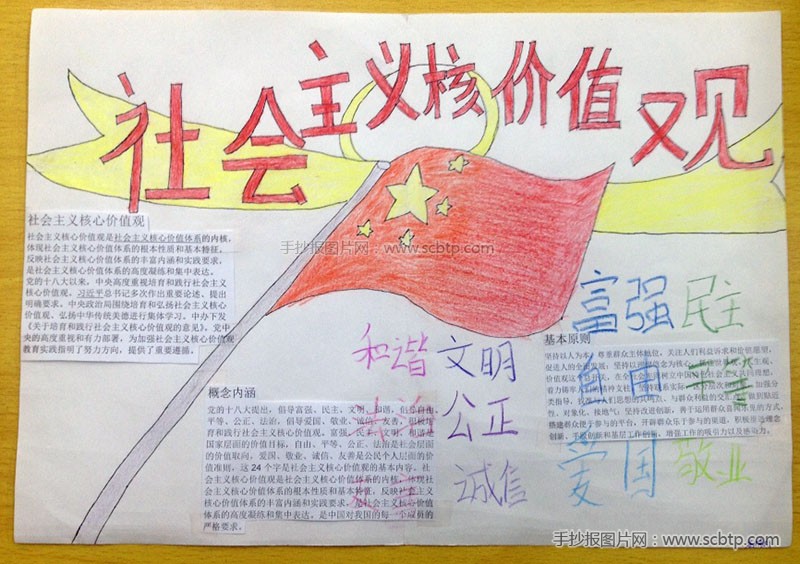 社会主义核价值观
手抄报图片网：www.scbtp.com
社会主义核心价值观
社会主义核心价值观是社会主义核心价值体系的内核，
体现社会主义核心价值体系的根本性质和基本特征，
反映社会主义核心价值体系的丰富内涵和实践要求，
是社会主义核心价值体系的高度凝练和集中表达。
党的十八大以来，中央高度重视培育和践行社会主义
核心价值观。习近平总书记多次作出重要论述、提出
明确要求。中央政治局围绕培育和弘扬社会主义核心价
值观、弘扬中华传统美德进行集体学习。中办下发
《关于培育和践行社会主义核心价值观的意见》。党中
央的高度重视和有力部署，为加强社会主义核心价值观
教育实践指明了努力方向，提供了重要遵循。
富强 民主
和谐 文明
自由 平等
法治 公正
爱国 敬业
诚信
友善
基本原则
坚持以人为本，尊重群众主体地位，关注人们利益诉求和价值愿望，
促进人的全面发展；坚持以理想信念为核心，
分类指导，
性、对象化、接地气；坚持改进创新，善于运用群众喜闻乐见的方式，
搭建群众便于参与的平台，开辟群众乐于参与的渠道，积极推进理念
创新、手段创新和基层工作创新，增强工作的吸引力以及感染力。
概念内涵
党的十八大提出，倡导富强、民主、文明、和谐，倡导自由、
平等、公正、法治，倡导爱国、敬业、诚信、友善，积极培
育和践行社会主义核心价值观。富强、民主、文明、和谐是
国家层面的价值目标，自由、平等、公正、法治是社会层面
的价值取向，爱国、敬业、诚信、友善是公民个人层面的价
值准则，这 24 个字是社会主义核心价值观的基本内容。社
会主义核心价值观是社会主义核心价值体系的内核，体现社
会主义核心价值体系的根本性质和基本特征，反映社会主义
核心价值体系的丰富内涵和实践要求，是社会主义核心价值
体系的高度凝练和集中表达。是中国对我国的每一个成员的
严格要求。
手抄报图片网：www.scbtp.com